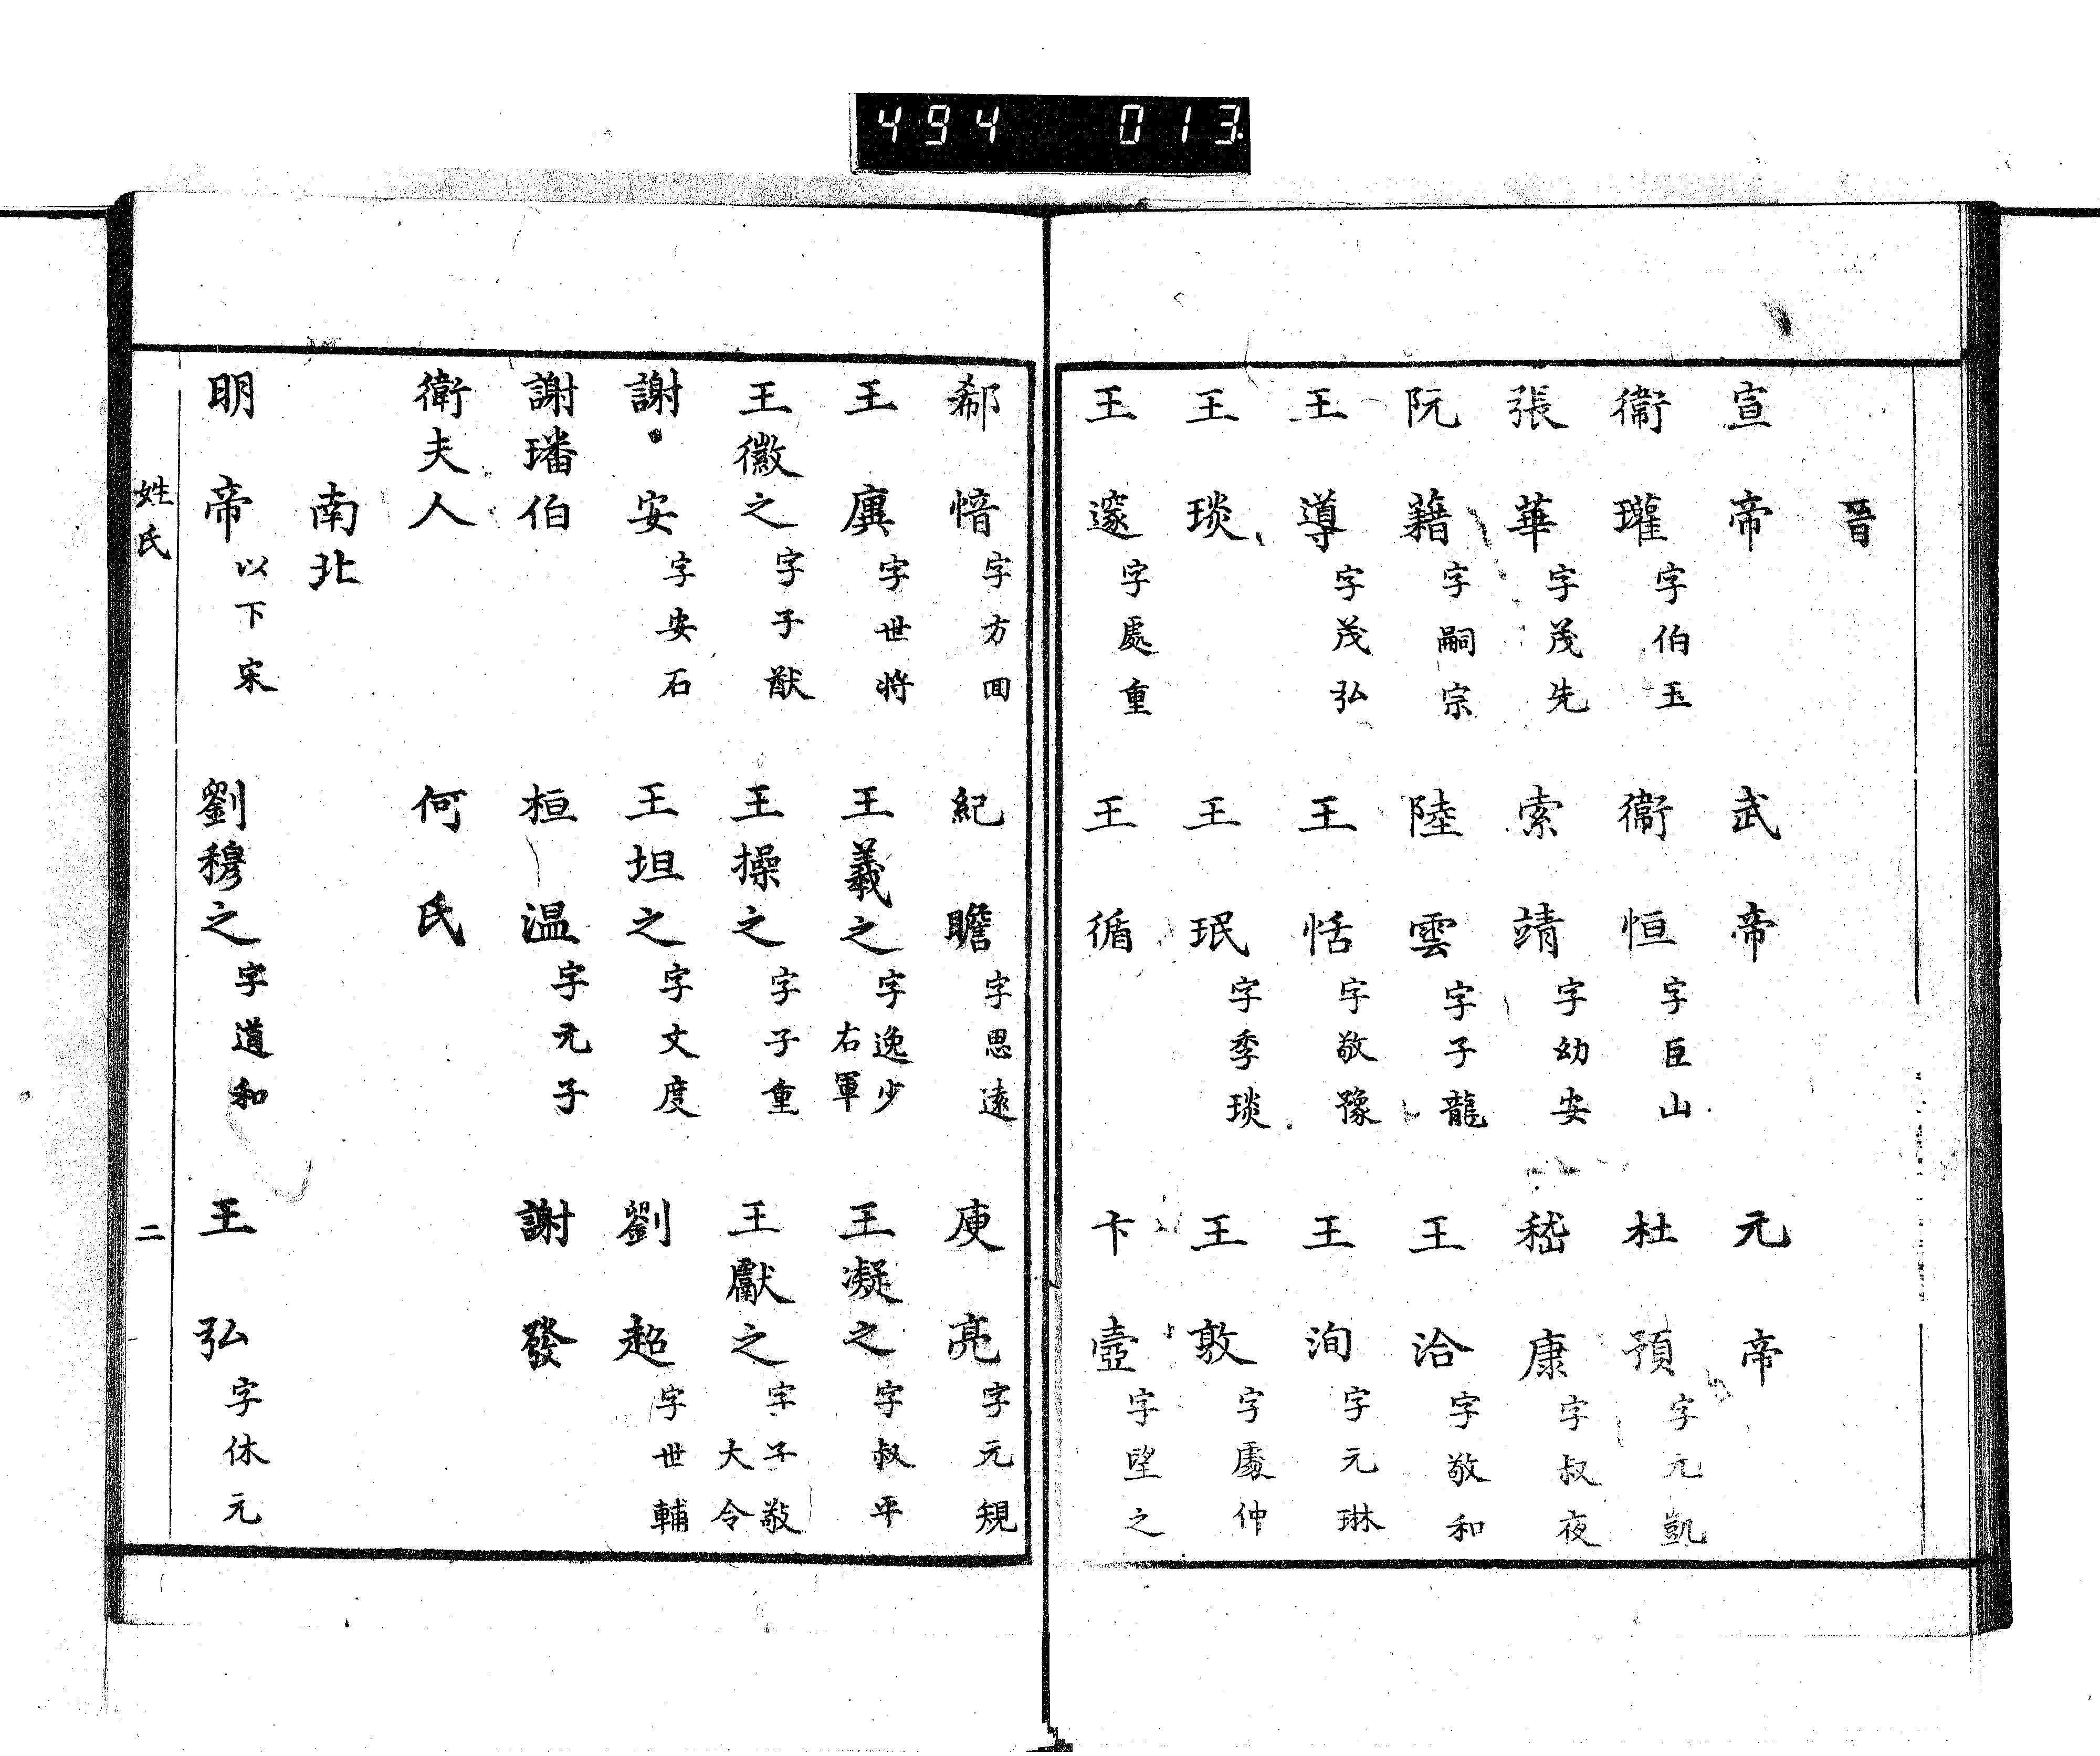 494 013
晉
宣帝 武帝 元帝
衞瓘字伯玉 衞恒字巨山 杜預字元凱
張華字茂先 索靖字幼安 嵇康字叔夜
阮藉字嗣宗 陸雲字子龍 王洽字敬和
王導字茂弘 王恬字敬豫 王洵字元琳
王琰 王珉字季琰 王敦字處仲
王邃字處重 王循 卞壼字望之
郗愔字方回 紀瞻字思遠 庾亮字元規
王廙字世將 王羲之字逸少右軍 王凝之字叔平
王徽之字子猷 王操之字子重 王獻之字子敬大令
謝安字安石 王坦之字文度 劉超字世輔
謝璠伯 桓温字元子 謝發
衛夫人 何氏
南北
明帝以下宋 劉穆之字道和 王弘字休元
姓氏 二